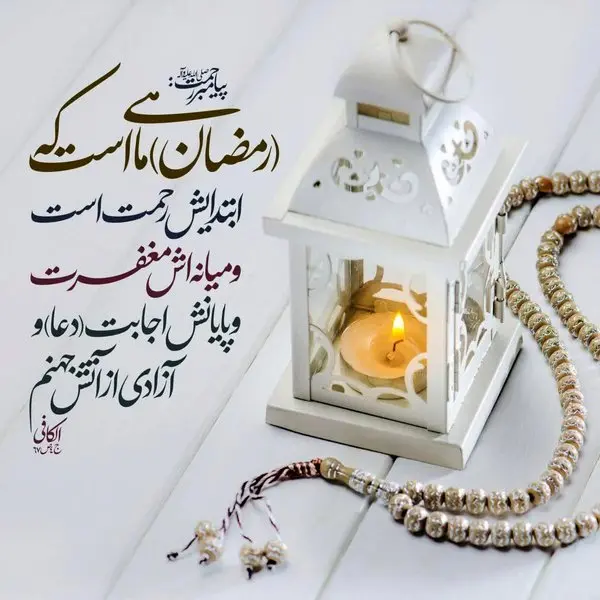 پیامبر رحمت صلی الله علیه وآله:
(رمضان) ماهی است که
ابتدایش رحمت است
و میانه اش مغفرت
و پایانش اجابت (دعا) و
آزادی از آتش جهنم
الکافی
ص ۶۷